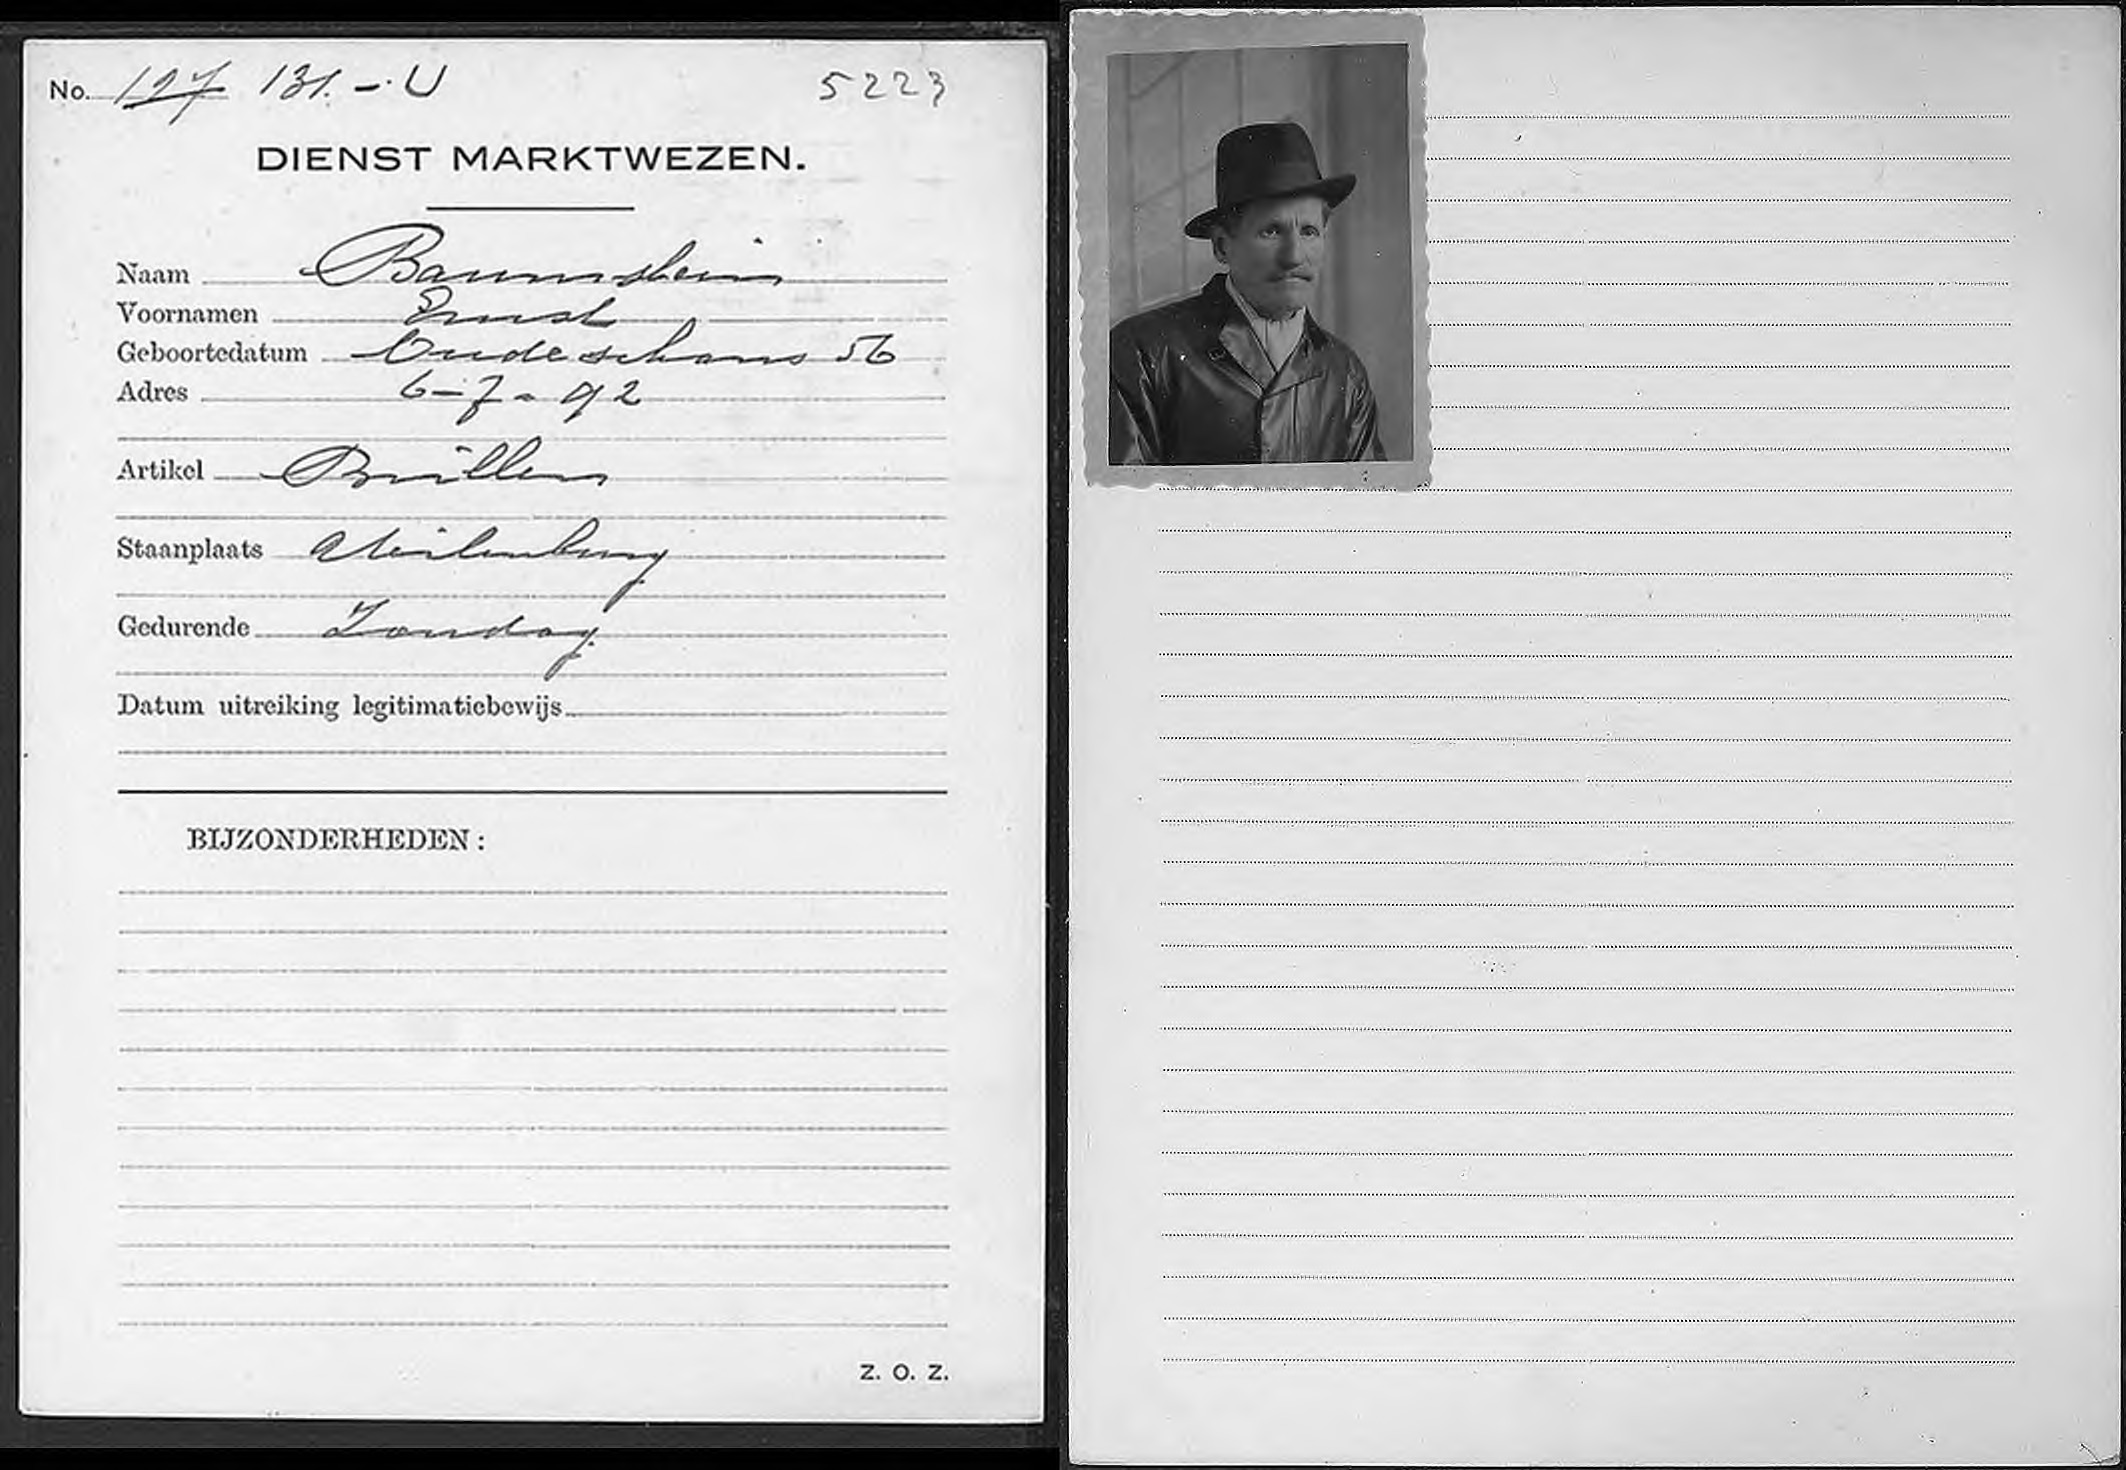 No. 127 131. - U 5223
DIENST MARKTWEZEN.
Naam Baumstein
Voornamen Ernst
Geboortedatum Oude schans 56
Adres 6-7-92
Artikel Brillen
Staanplaats Uilenburg
Gedurende Zondag.
Datum uitreiking legitimatiebewijs
BIJZONDERHEDEN:
Z. O. Z.